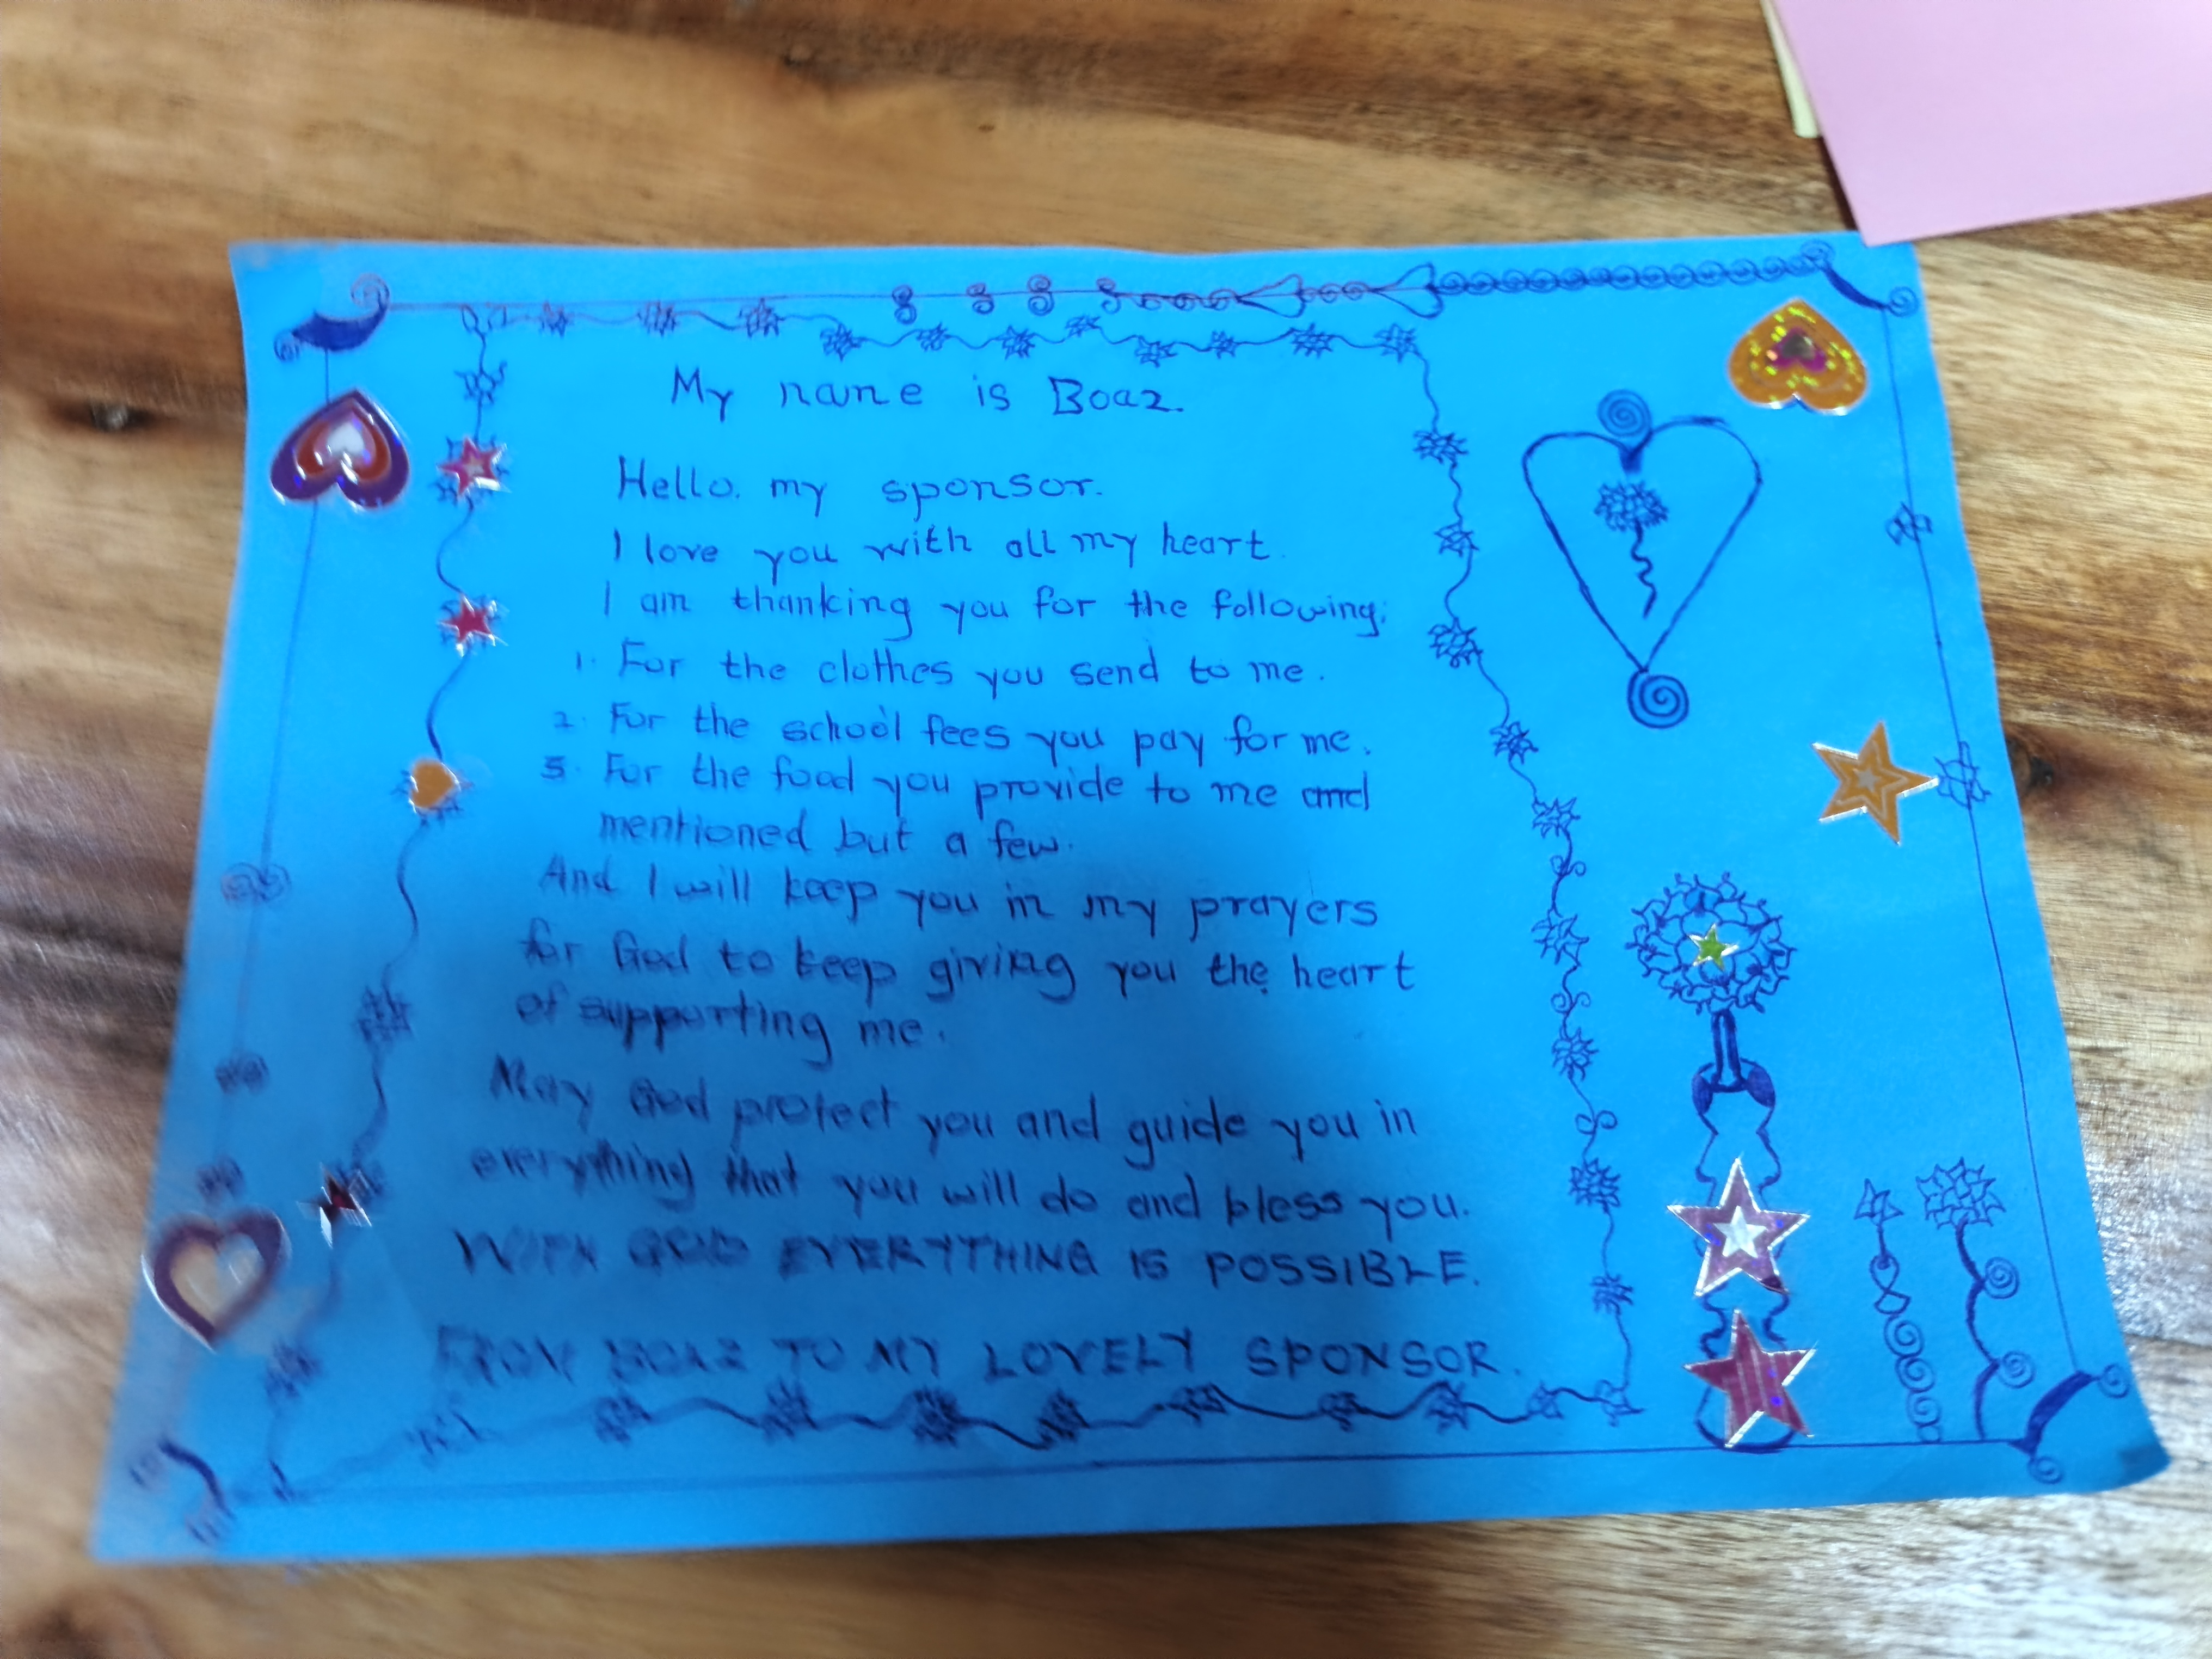 My name is Boaz.
Hello. my sponsor.
I love you with all my heart.
I am thanking you for the following;
1. For the clothes you send to me.
2. For the school fees you pay for me.
3. For the food you provide to me and
mentioned but a few.
And I will keep you in my prayers
for God to keep giving you the heart
of supporting me.
May God protect you and guide you in
everything that you will do and bless you.
WITH GOD EVERYTHING IS POSSIBLE.
FROM BOAZ TO MY LOVELY SPONSOR.